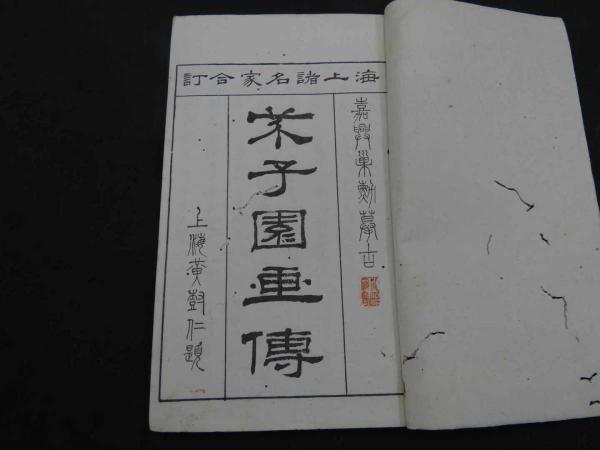 海上諸名家合訂
嘉興巢勳摹古
芥子園画傳
上海黃仁題